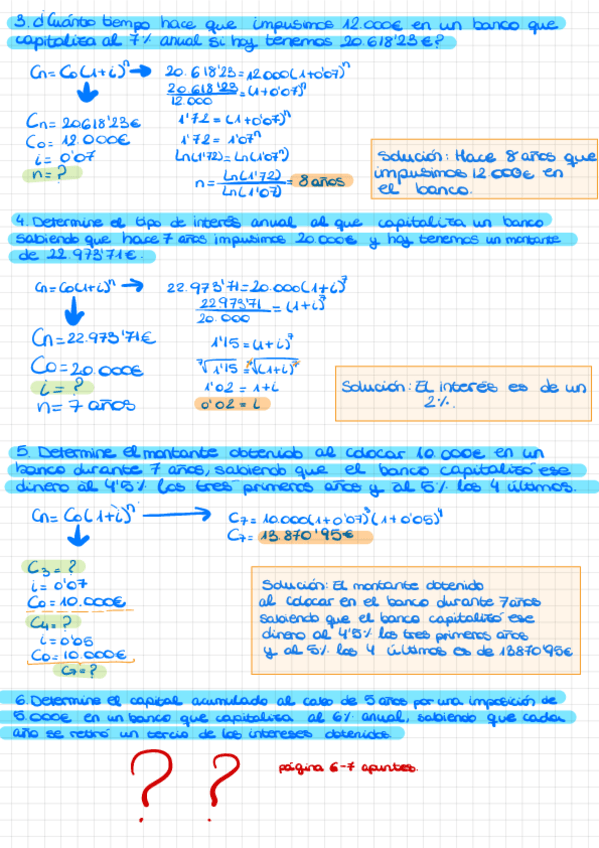 3. ¿Cuánto tiempo hace que impusimos 12.000€ en un banco que
capitaliza al 7% anual si hoy tenemos 20.618'23€?
Cn=Co(1+i)ⁿ → 20.618'23=12000(1+0'07)ⁿ
20.618'23/12.000=(1+0'07)ⁿ
Cn=20618'23€
1'72=(1+0'07)ⁿ
Co=12.000€
1'72=1'07ⁿ
i=0'07
Ln(1'72)=Ln(1'07ⁿ)
n=?
n=Ln(1'72)/Ln(1'07)=8 años
Solución: Hace 8 años que
impusimos 12.000€ en
el banco.
4. Determine el tipo de interés anual al que capitaliza un banco
sabiendo que hace 7 años impusimos 20.000€ y hoy tenemos un montante
de 22.973'71€.
Cn=Co(1+i)ⁿ → 22.973'71=20.000(1+i)⁷
22973'71/20.000=(1+i)⁷
Cn=22.973'71€
1'15=(1+i)⁷
Co=20.000€
⁷√1'15=⁷√(1+i)⁷
i=?
1'02=1+i
n=7 años
0'02=i
Solución: El interés es de un
2%.
5. Determine el montante obtenido al colocar 10.000€ en un
banco durante 7 años, sabiendo que el banco capitalizó ese
dinero al 4'5% los tres primeros años y al 5% los 4 últimos.
Cn=Co(1+i)ⁿ → C7=10.000(1+0'07)³(1+0'05)⁴
C7=13.870'95€
C3=?
i=0'07
Co=10.000€
C4=?
i=0'05
Co=10.000€
C7=?
Solución: El montante obtenido
al colocar en el banco durante 7 años
sabiendo que el banco capitalizó ese
dinero al 4'5% los tres primeros años
y al 5% los 4 últimos es de 13870'95€
6. Determine el capital acumulado al cabo de 5 años por una imposición de
5.000€ en un banco que capitaliza al 6% anual, sabiendo que cada
año se retiró un tercio de los intereses obtenidos.
? ?
página 6-7 apuntes.